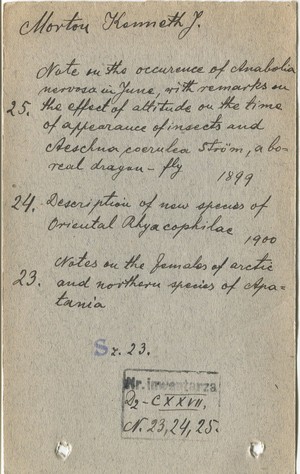 Morton Kenneth J.
Note on the occurence of Anabolia
nervosa in June, with remarks on
25. the effect of altitude on the time
of appearance of insects and
Aeschna coerulea Ström, a bo-
real dragon-fly
1899
24. Description of new species of
Oriental Rhyacophilae
1900
23. Notes on the females of arctic
and northern species of Apa-
tania
Sz. 23.
Nr. inwentarza
D2-CXXVII,
N. 23, 24, 25.